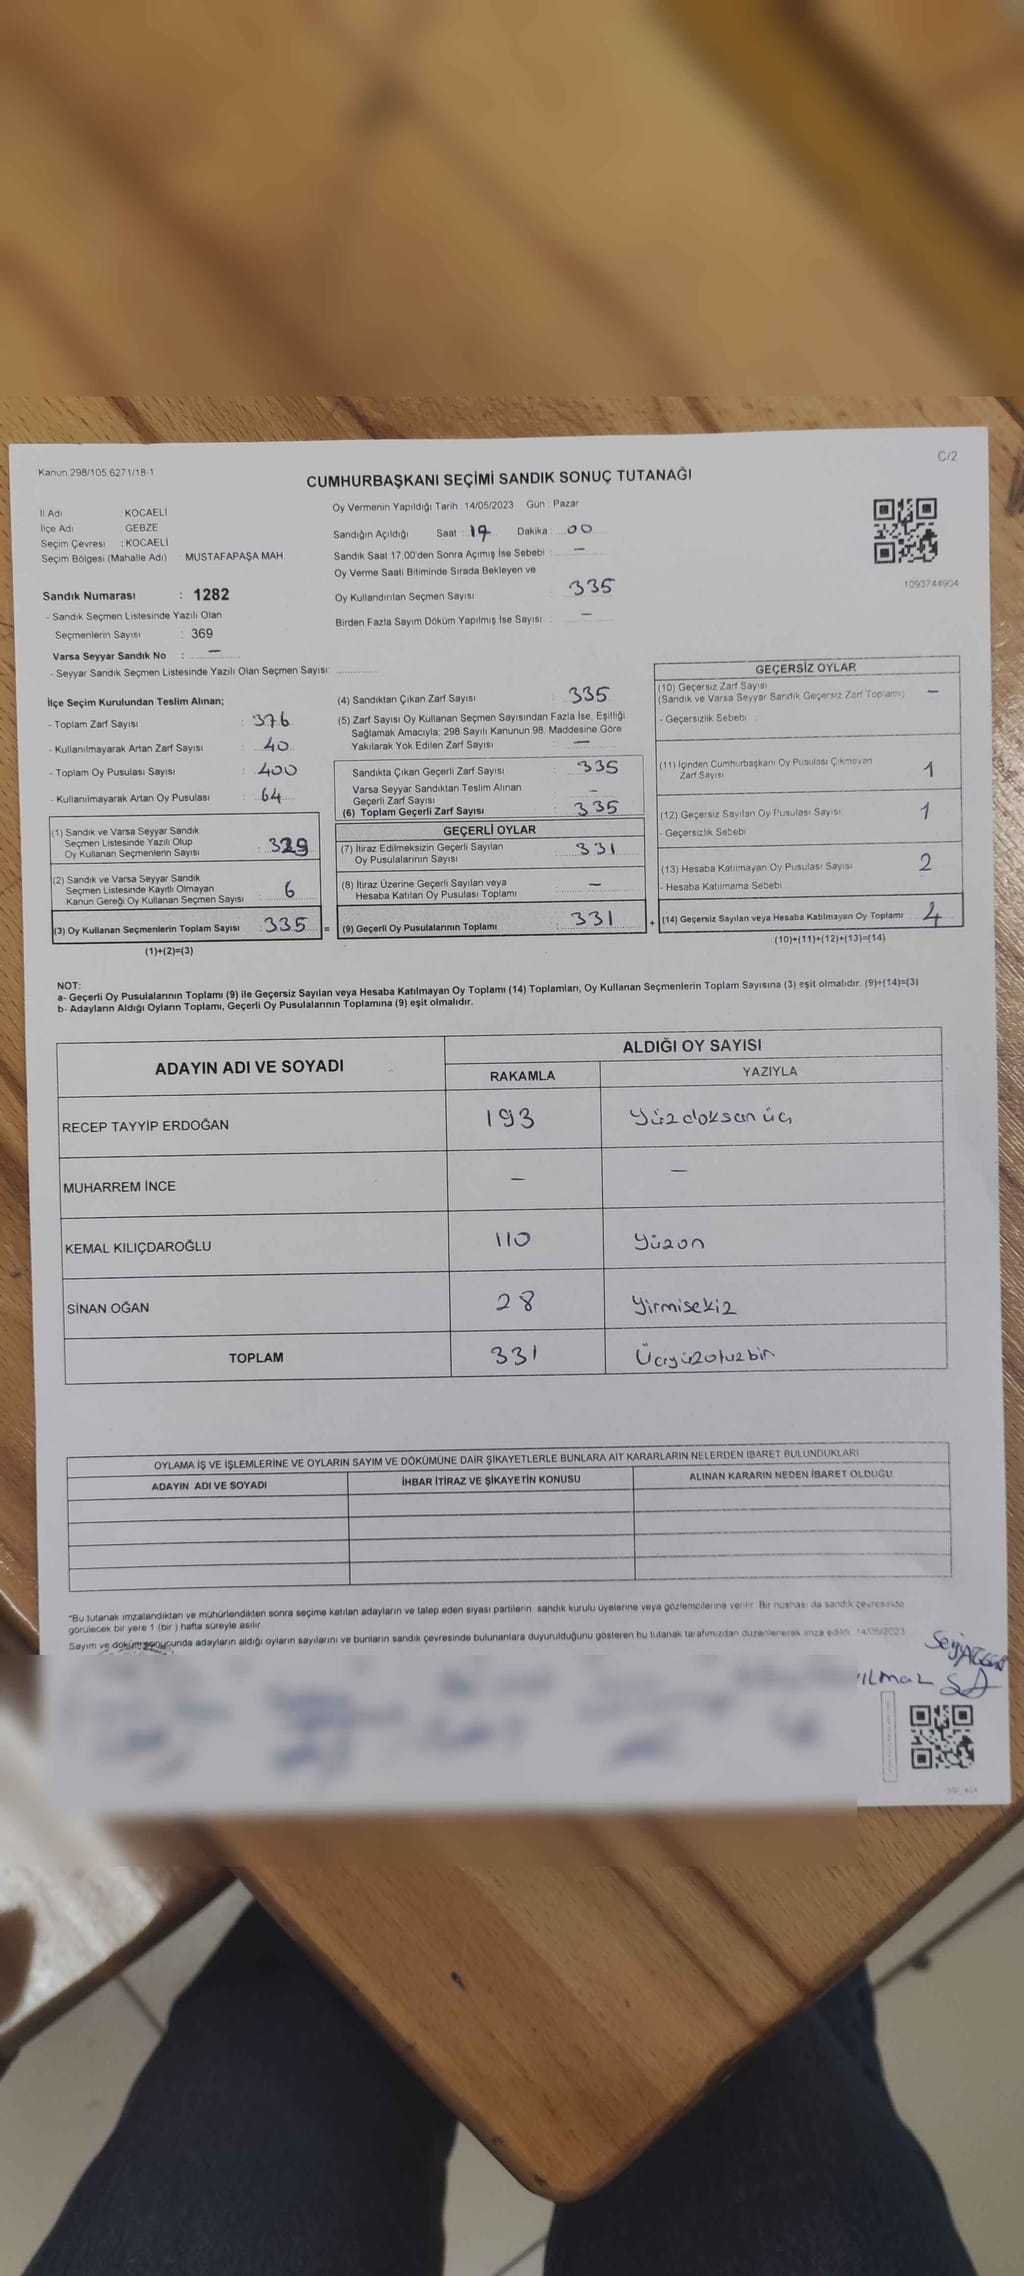 Kanun:298/105.6271/18-1
C/2
CUMHURBAŞKANI SEÇİMİ SANDIK SONUÇ TUTANAĞI
İl Adı : KOCAELİ
İlçe Adı : GEBZE
Seçim Çevresi : KOCAELİ
Seçim Bölgesi (Mahalle Adı) : MUSTAFAPAŞA MAH
Sandık Numarası : 1282
- Sandık Seçmen Listesinde Yazılı Olan
Seçmenlerin Sayısı : 369
Varsa Seyyar Sandık No : —
- Seyyar Sandık Seçmen Listesinde Yazılı Olan Seçmen Sayısı:
Oy Vermenin Yapıldığı Tarih :14/05/2023 Gün : Pazar
Sandığın Açıldığı Saat : 17 Dakika : 00
Sandık Saat 17.00'den Sonra Açımış İse Sebebi : —
Oy Verme Saati Bitiminde Sırada Bekleyen ve
Oy Kullandırılan Seçmen Sayısı : 335
Birden Fazla Sayım Döküm Yapılmış İse Sayısı : —
1093744904
İlçe Seçim Kurulundan Teslim Alınan;
- Toplam Zarf Sayısı : 376
- Kullanılmayarak Artan Zarf Sayısı : 40
- Toplam Oy Pusulası Sayısı : 400
- Kullanılmayarak Artan Oy Pusulası : 64
(1) Sandık ve Varsa Seyyar Sandık
Seçmen Listesinde Yazılı Olup
Oy Kullanan Seçmenlerin Sayısı : 329
(2) Sandık ve Varsa Seyyar Sandık
Seçmen Listesinde Kayıtlı Olmayan
Kanun Gereği Oy Kullanan Seçmen Sayısı : 6
(3) Oy Kullanan Seçmenlerin Toplam Sayısı : 335 =
(1)+(2)=(3)
(4) Sandıktan Çıkan Zarf Sayısı : 335
(5) Zarf Sayısı Oy Kullanan Seçmen Sayısından Fazla İse, Eşitliği
Sağlamak Amacıyla; 298 Sayılı Kanunun 98. Maddesine Göre
Yakılarak Yok Edilen Zarf Sayısı : —
Sandıkta Çıkan Geçerli Zarf Sayısı : 335
Varsa Seyyar Sandıktan Teslim Alınan
Geçerli Zarf Sayısı : —
(6) Toplam Geçerli Zarf Sayısı : 335
GEÇERLİ OYLAR
(7) İtiraz Edilmeksizin Geçerli Sayılan
Oy Pusulalarının Sayısı : 331
(8) İtiraz Üzerine Geçerli Sayılan veya
Hesaba Katılan Oy Pusulası Toplamı : —
(9) Geçerli Oy Pusulalarının Toplamı : 331 +
GEÇERSİZ OYLAR
(10) Geçersiz Zarf Sayısı
(Sandık ve Varsa Seyyar Sandık Geçersiz Zarf Toplamı) —
- Geçersizlik Sebebi
(11) İçinden Cumhurbaşkanı Oy Pusulası Çıkmayan
Zarf Sayısı 1
(12) Geçersiz Sayılan Oy Pusulası Sayısı 1
- Geçersizlik Sebebi
(13) Hesaba Katılmayan Oy Pusulası Sayısı 2
- Hesaba Katılmama Sebebi
(14) Geçersiz Sayılan veya Hesaba Katılmayan Oy Toplamı 4
(10)+(11)+(12)+(13)=(14)
NOT:
a- Geçerli Oy Pusulalarının Toplamı (9) ile Geçersiz Sayılan veya Hesaba Katılmayan Oy Toplamı (14) Toplamları, Oy Kullanan Seçmenlerin Toplam Sayısına (3) eşit olmalıdır. (9)+(14)=(3)
b- Adayların Aldığı Oyların Toplamı, Geçerli Oy Pusulalarının Toplamına (9) eşit olmalıdır.
ADAYIN ADI VE SOYADI
ALDIĞI OY SAYISI
RAKAMLA YAZIYLA
RECEP TAYYİP ERDOĞAN 193 Yüzdoksanüç
MUHARREM İNCE — —
KEMAL KILIÇDAROĞLU 110 Yüzon
SİNAN OĞAN 28 Yirmisekiz
TOPLAM 331 Üçyüzotuzbir
OYLAMA İŞ VE İŞLEMLERİNE VE OYLARIN SAYIM VE DÖKÜMÜNE DAİR ŞİKAYETLERLE BUNLARA AİT KARARLARIN NELERDEN İBARET BULUNDUKLARI
ADAYIN ADI VE SOYADI İHBAR İTİRAZ VE ŞİKAYETİN KONUSU ALINAN KARARIN NEDEN İBARET OLDUĞU
*Bu tutanak imzalandıktan ve mühürlendikten sonra seçime katılan adayların ve talep eden siyasi partilerin sandık kurulu üyelerine veya gözlemcilerine verilir. Bir nüshası da sandık çevresinde
görülecek bir yere 1 (bir ) hafta süreyle asılır.
Sayım ve döküm sonucunda adayların aldığı oyların sayılarını ve bunların sandık çevresinde bulunanlara duyurulduğunu gösteren bu tutanak tarafımızdan düzenlenerek imza edildi. 14/05/2023
YILMAZ